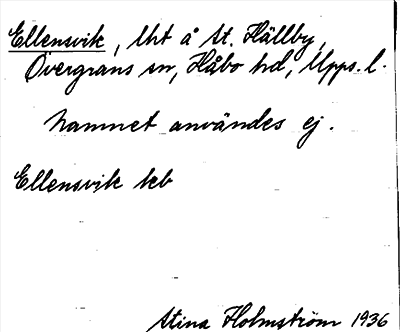 Ellensvik, lht å St. Hällby,
Övergrans sn, Håbo hd, Upps. l.
Namnet användes ej.
Ellensvik keb
Stina Holmström 1936